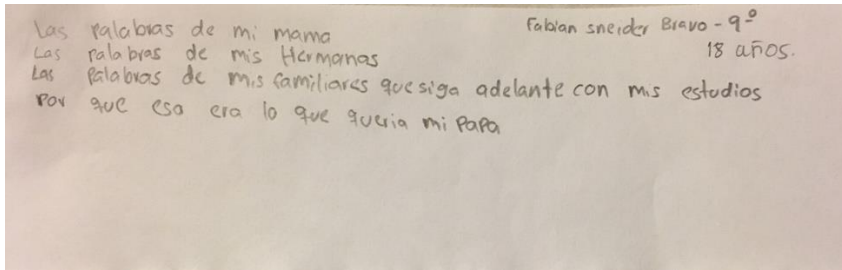 Las palabras de mi mama
Fabian sneider Bravo - 9º
Las palabras de mis Hermanas
18 años.
Las Palabras de mis familiares que siga adelante con mis estudios
Por que eso era lo que queria mi PaPa